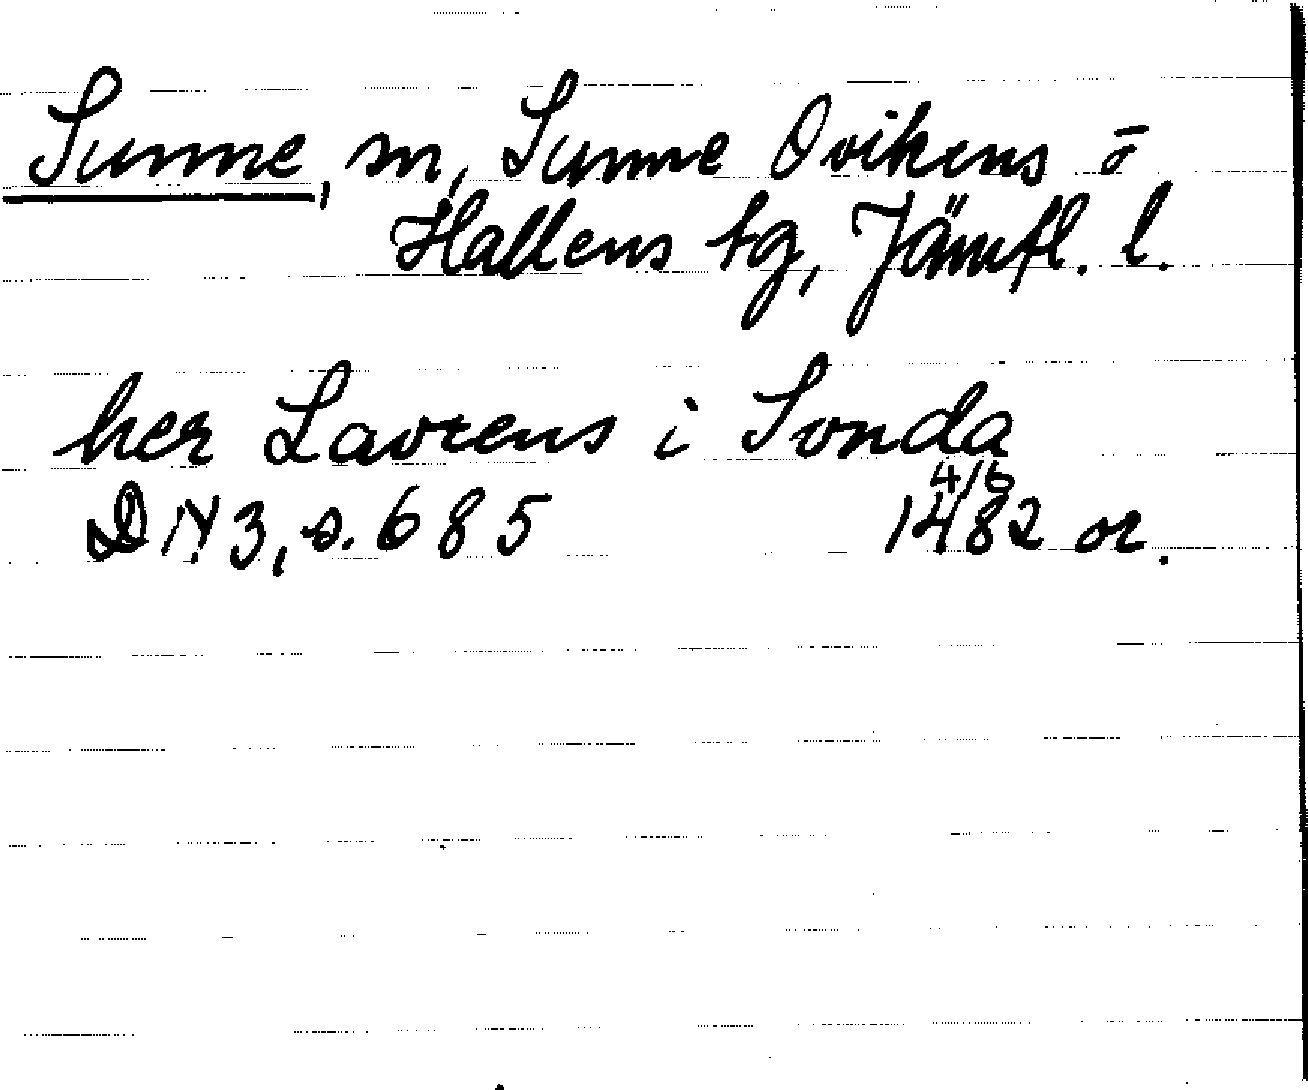 Sunne, sn, Sunne Ovikens o
Hallens tg, Jämtl. l.
her Lavrens i Sonda
4/6
DN 3, s. 685 1482 or.